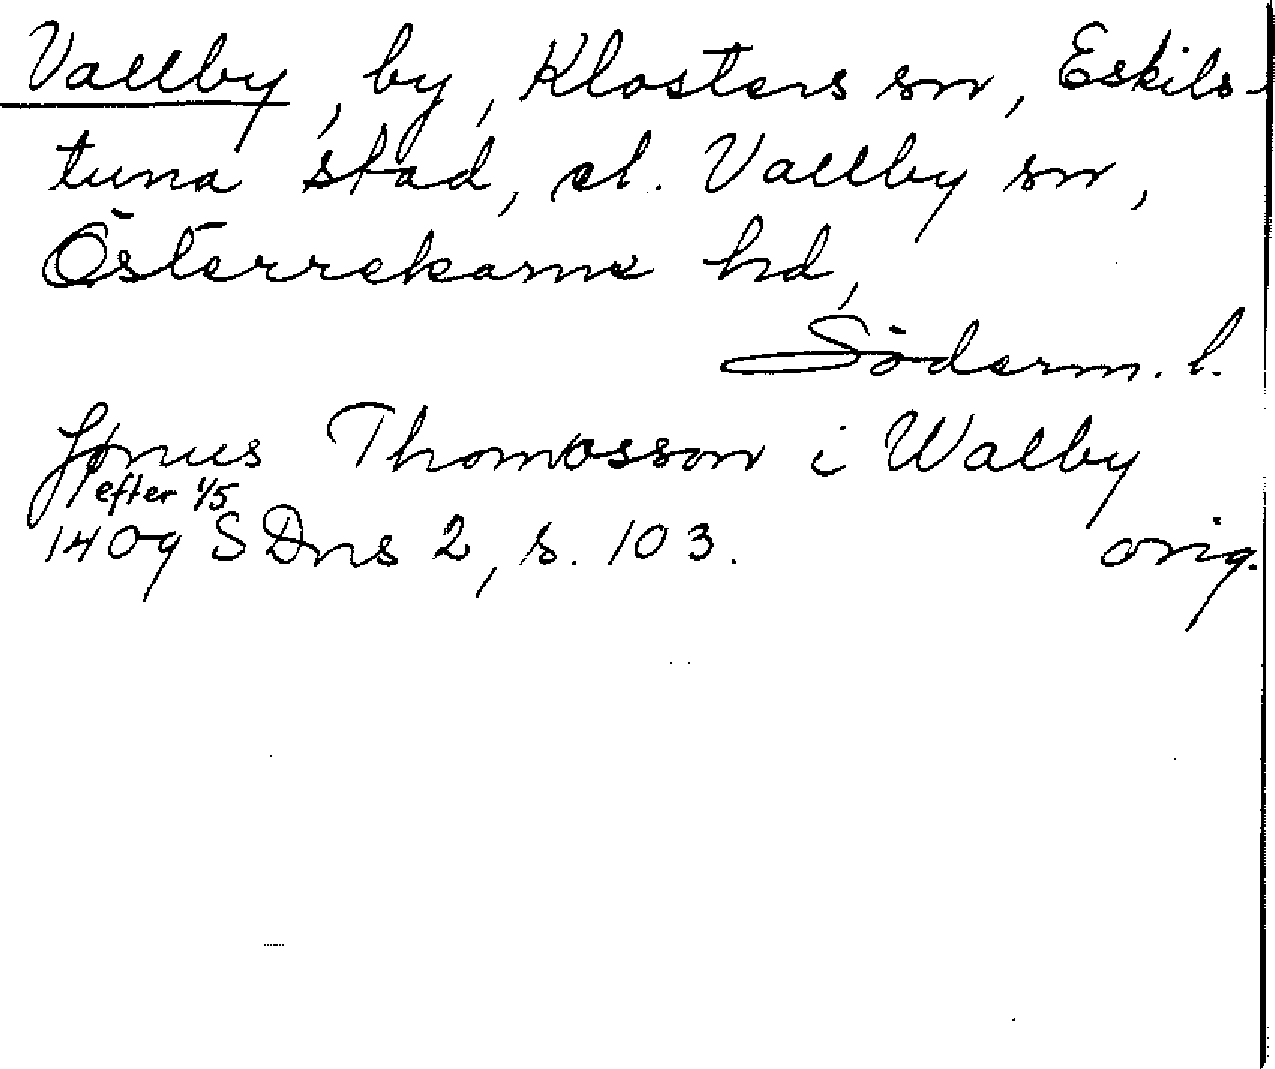 Vallby, by, Klosters sn, Eskils-
tuna stad, el. Vallby sn,
Österrekarne hd,
Söderm. l.
Jønus Thomosson i Walby
efter 1/5
1409 SDns 2, s. 103. orig.